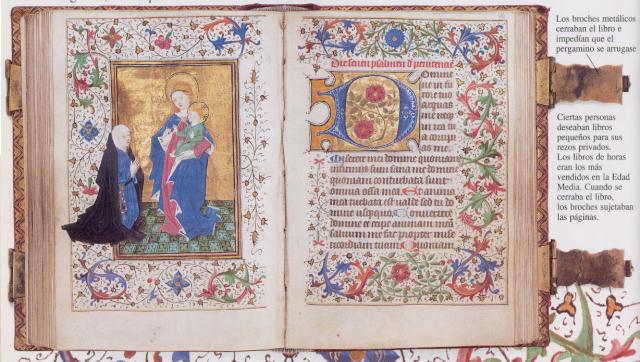 Los broches metálicos
cerraban el libro e
impedían que el
pergamino se arrugase
Domine
ne in fu
rore tuo
arguas
me
in ira tu
a
as me
Miserere mei domine quoniam
infirmus sum sana me domine
quoniam conturbata sunt
omnia ossa mea Et anima
mea turbata est valde sed tu do
mine Convertere
domine et eripe animam meam
salvum me fac propter mise
ricordiam tuam Quoniam
Ciertas personas
deseaban libros
pequeños para sus
rezos privados.
Los libros de horas
eran los más
vendidos en la Edad
Media. Cuando se
cerraba el libro,
los broches sujetaban
las páginas.